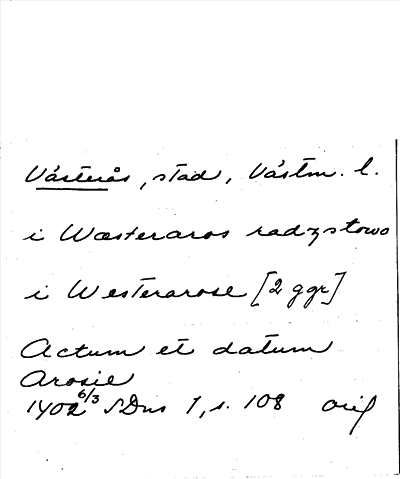 Västerås, stad, Västm. l.
i Wæsteraros radzstowo
i Westerarose [2 ggr]
Actum et datum
Arosie
1402 6/3 SDns 1, s. 108 orig